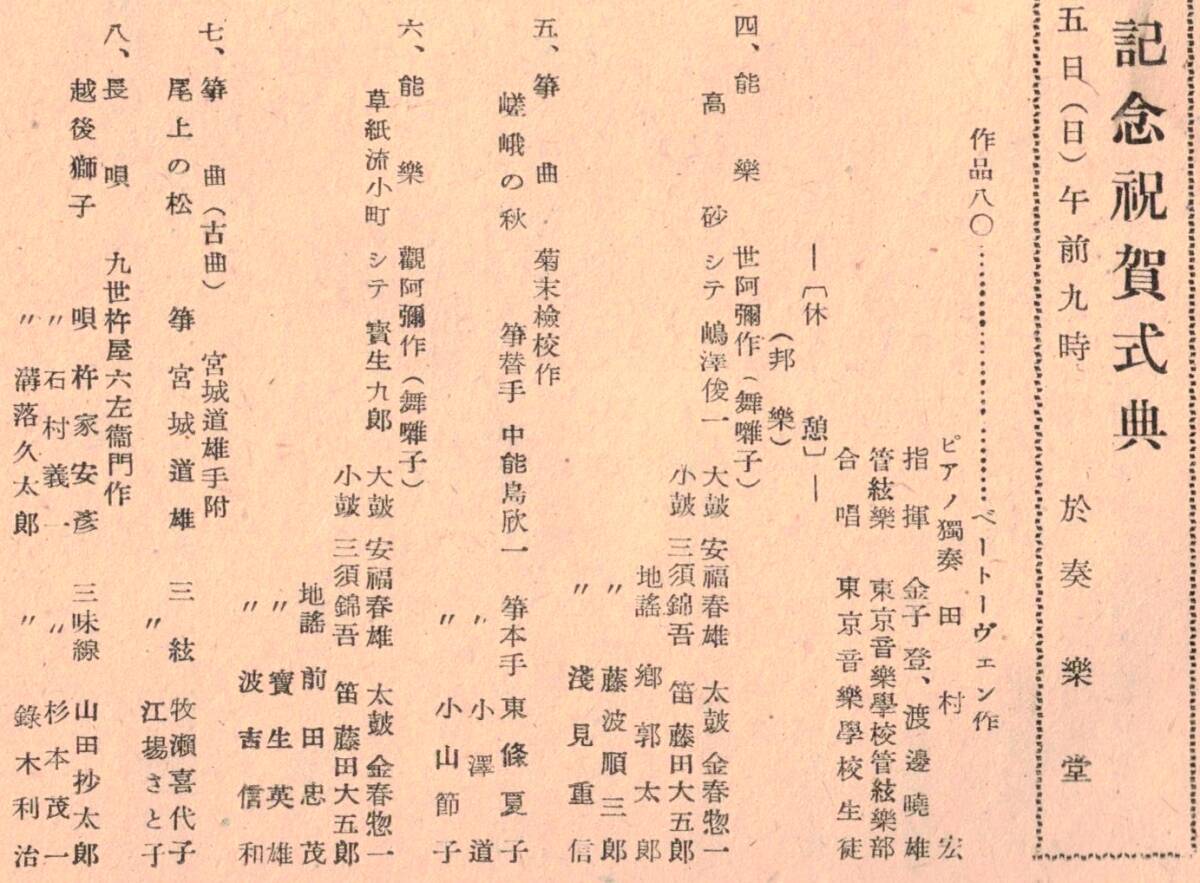 記念祝賀式典
五日（日）午前九時　於奏樂堂
作品八〇……………………ベートーヴェン作
ピアノ獨奏　田村　宏
指揮　金子登、渡邊曉雄
管絃樂　東京音樂學校管絃樂部
合唱　東京音樂學校生徒
―〔休　憩〕―
（邦　樂）
四、能　樂　世阿彌作（舞囃子）
高　砂　シテ　嶋澤俊一　大鼓　安福春雄　太鼓　金春惣一
小鼓　三須錦吾　笛　藤田大五郎
地謠　鄕郭太郎
〃　藤波順三郎
〃　淺見重信
五、箏　曲　菊末檢校作
嵯峨の秋　箏替手　中能島欣一　箏本手　東條夏子
〃　小澤道
〃　小山節子
六、能　樂　觀阿彌作（舞囃子）
草紙流小町　シテ　寳生九郎　大鼓　安福春雄　太鼓　金春惣一
小鼓　三須錦吾　笛　藤田大五郎
地謠　前田忠茂
〃　寳生英雄
〃　波吉信和
七、箏　曲（古曲）　宮城道雄手附
尾上の松　箏　宮城道雄　三絃　牧瀬喜代子
〃　江場さと子
八、長　唄　九世杵屋六左衞門作
越後獅子　唄　杵家安彥　三味線　山田抄太郎
〃　石村義一　〃　杉本茂一
〃　溝落久太郎　〃　錄木利治